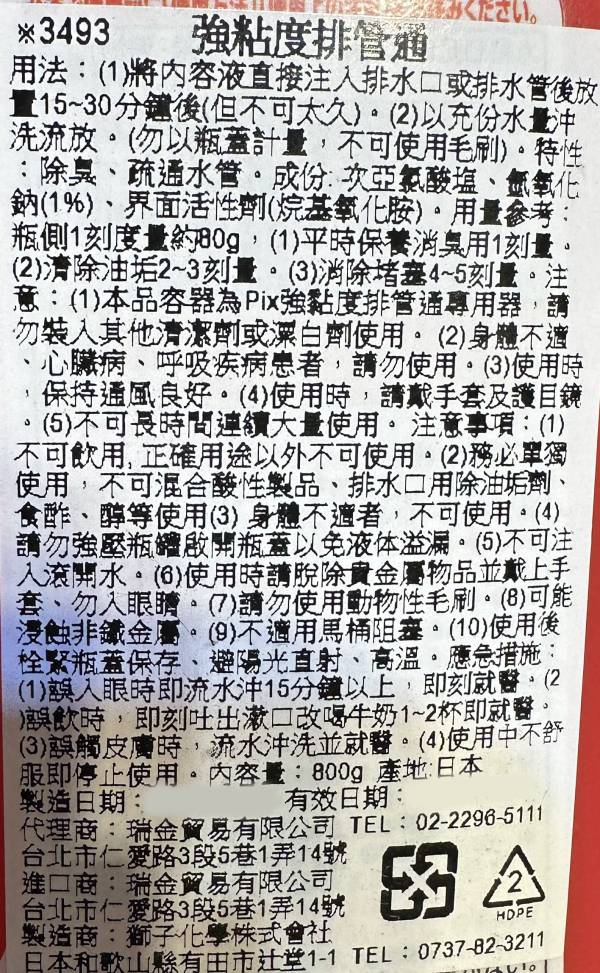 ※3493 強粘度排管通
用法：(1)將內容液直接注入排水口或排水管後放
置15~30分鐘後(但不可太久)。(2)以充份水量沖
洗流放。(勿以瓶蓋計量，不可使用毛刷)。特性
：除臭、疏通水管。成份:次亞氯酸塩、氫氧化
鈉(1%)、界面活性劑(烷基氧化胺)。用量參考：
瓶側1刻度量約80g，(1)平時保養消臭用1刻量。
(2)清除油垢2~3刻量。(3)消除堵塞4~5刻量。注
意：(1)本品容器為Pix強黏度排管通專用器，請
勿裝入其他清潔劑或漂白劑使用。(2)身體不適
、心臟病、呼吸疾病患者，請勿使用。(3)使用時
，保持通風良好。(4)使用時，請戴手套及護目鏡
。(5)不可長時間連續大量使用。注意事項：(1)
不可飲用,正確用途以外不可使用。(2)務必單獨
使用，不可混合酸性製品、排水口用除油垢劑、
食酢、醇等使用(3)身體不適者，不可使用。(4)
請勿強壓瓶罐啟開瓶蓋以免液体溢漏。(5)不可注
入滾開水。(6)使用時請脫除貴金屬物品並戴上手
套、勿入眼睛。(7)請勿使用動物性毛刷。(8)可能
浸蝕非鐵金屬。(9)不適用馬桶阻塞。(10)使用後
栓緊瓶蓋保存、避陽光直射、高溫。應急措施：
(1)誤入眼時即流水沖15分鐘以上，即刻就醫。(2
)誤飲時，即刻吐出漱口改喝牛奶1~2杯即就醫。
(3)誤觸皮膚時，流水沖洗並就醫。(4)使用中不舒
服即停止使用。內容量：800g 產地:日本
製造日期： 有效日期：
代理商：瑞金貿易有限公司 TEL：02-2296-5111
台北市仁愛路3段5巷1弄14號
進口商：瑞金貿易有限公司
台北市仁愛路3段5巷1弄14號
製造商：獅子化學株式會社
日本和歌山縣有田市辻堂1-1 TEL：0737-82-3211
2
HDPE